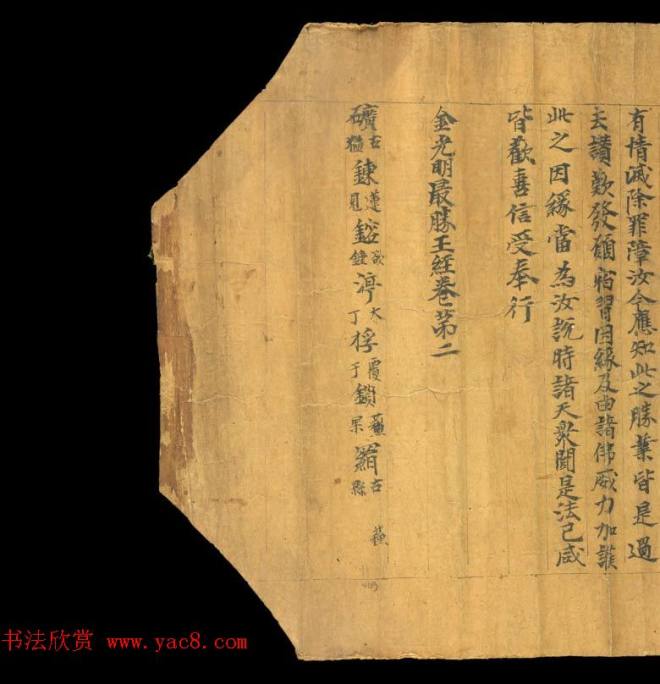 有情滅除罪障汝今應知此之勝業皆是過
去讃歎發願宿習因緣及由諸佛威力加護
此之因緣當為汝説時諸天衆聞是法已咸
皆歡喜信受奉行
金光明最勝王經卷第二
礦古猛鍊蓮見鎔欲鍾渟大丁桴覆于鎖蘓果羂古縣 蘓
书法欣赏 www.yac8.com